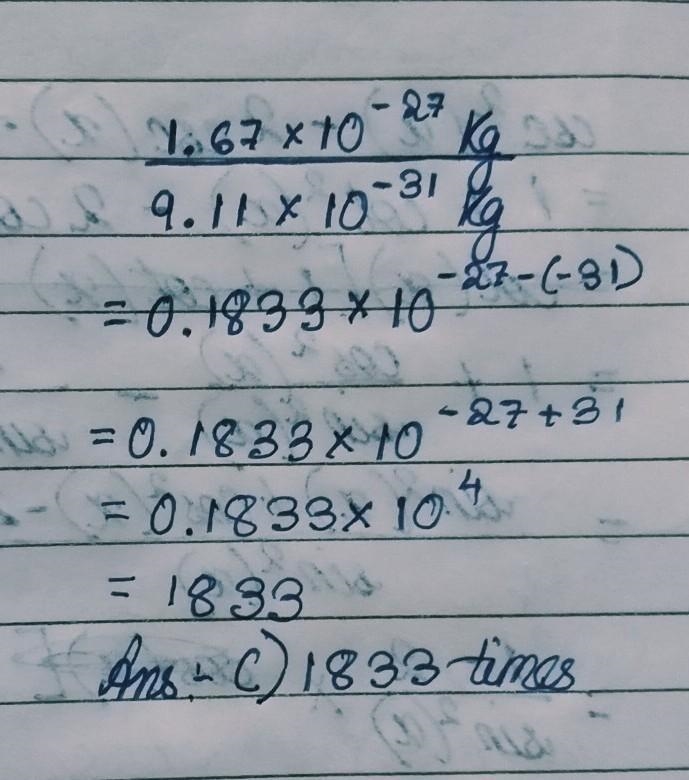 1.67 × 10^-27 Kg
9.11 × 10^-31 Kg
= 0.1833 × 10^-27-(-31)
= 0.1833 × 10^-27+31
= 0.1833 × 10^4
= 1833
Ans - C) 1833 times